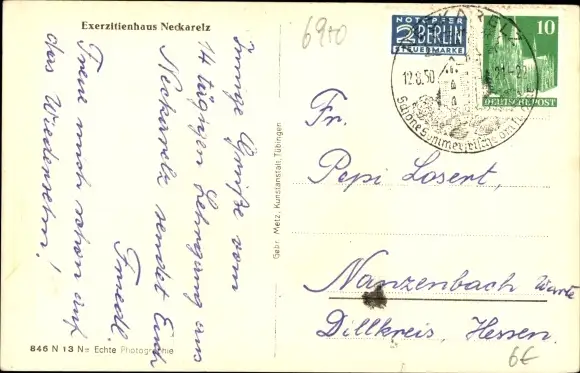 Exerzitienhaus Neckarelz
6970
NOTOPFER
2 BERLIN
STEUERMARKE
NECKARELZ
12.8.50
21-2
Schöne Sommerfrische am
10
DEUTSCHE POST
Innige Grüße vom
14 tägigen Lehrgang aus
Neckarelz sendet Euch
Friedl.
Freue mich schon auf
das Wiedersehn!
Gebr. Metz, Kunstanstalt, Tübingen
Fr.
Pepi Losert,
Nanzenbach Warte
Dillkreis, Hessen.
846 N 13 N= Echte Photographie
6€